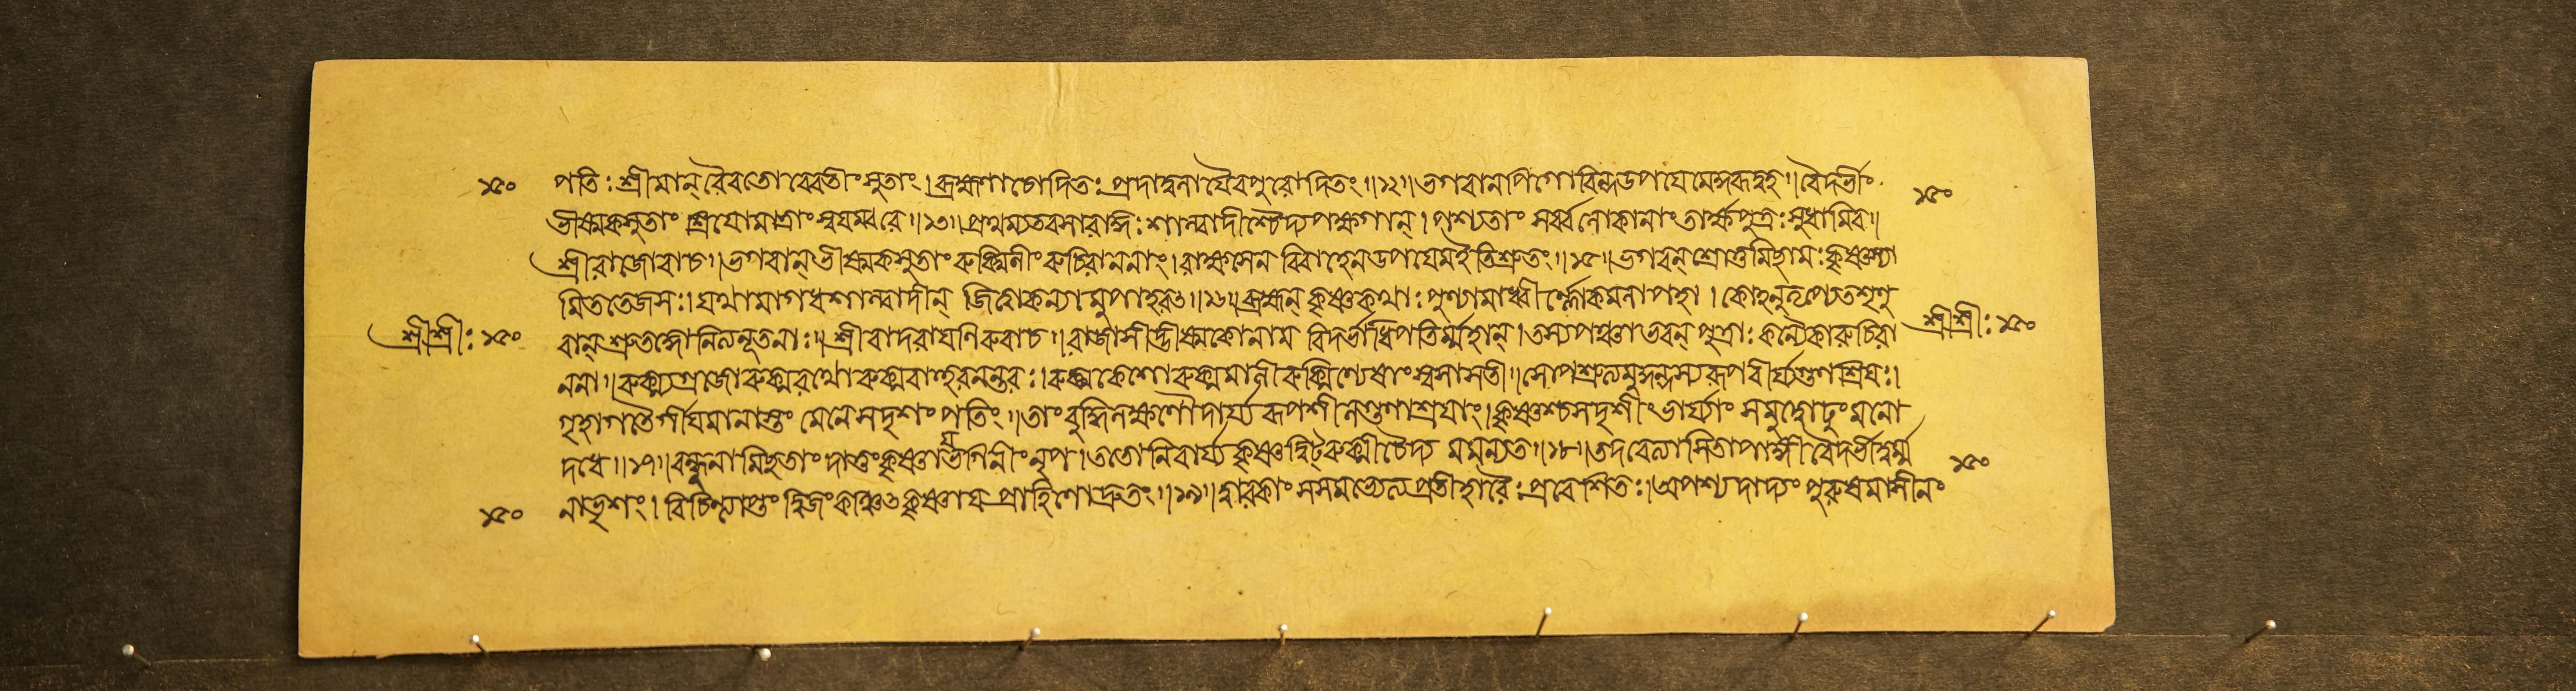 ১৫০ পতিঃ শ্রীমান্ রৈবতো রেবতীং সুতাং। ব্রহ্মণা চোদিতঃ প্রাদাদ্বলাযৈব পুরোদিতং॥১২॥ ভগবানপি গোবিন্দ উপযেমে কুরূদ্বহ॥ বৈদর্ভীং ১৫০
ভীষ্মকসুতাং শ্রিযোমাত্রাং স্বযম্বরে॥১৩॥ প্রমথ্য তরসা রাজ্ঞঃ শাল্বাদীংশ্চৈদ্যপক্ষগান্। পশ্যতাং সর্ব্বলোকানাং তার্ক্ষপুত্রঃ সুধামিব॥
শ্রীরাজোবাচ॥ ভগবান্ ভীষ্মকসুতাং রুক্মিণীং রুচিরাননাং। রাক্ষসেন বিবাহেন উপযেম ইতি শ্রুতং॥১৫॥ ভগবন্ শ্রোতুমিছামঃ কৃষ্ণস্যা
মিততেজসঃ। যথা মাগধশাল্বাদীন্ জিত্বা কন্যামুপাহরৎ॥১৬॥ ব্রহ্মন্ কৃষ্ণকথাঃ পুণ্যা মাধ্বীর্ল্লোকমলাপহা। কোহনুতৃপ্যেত শৃণ্ব
শ্রীশ্রীঃ ১৫০ বান্ শ্রুতজ্ঞো নিত্যনূতনাঃ॥ শ্রীবাদরাযণিরুবাচ॥ রাজাসীদ্ভীষ্মকো নাম বিদর্ভাধিপতির্ম্মহান্। তস্য পঞ্চাভবন্ পুত্রাঃ কন্যৈকা রুচিরা শ্রীশ্রীঃ ১৫০
ননা॥ রুক্ম্যগ্রজো রুক্মরথো রুক্মবাহুরনন্তরঃ। রুক্মকেশো রুক্মমালী রুক্মিণ্যেষাং স্বসা সতী॥ সোপশ্রুত্য মুকুন্দস্য রূপবীর্য্যগুণশ্রিযঃ।
গৃহাগতৈর্গীযমানাস্তং মেনে সদৃশং পতিং॥ তাং বুদ্ধিলক্ষণৌদার্য্য রূপশীলগুণাশ্রযাং। কৃষ্ণশ্চ সদৃশীং ভার্য্যাং সমুদ্বোঢুং মনো
দধে॥১৭॥ বন্ধূনামিছতাং দাতুং কৃষ্ণায ভগিনীং নৃপ। ততো নিবার্য্য কৃষ্ণদ্বিট্ রুক্মী চৈদ্য মমন্যত॥১৮॥ তদবেত্যাসিতাপাঙ্গী বৈদর্ভী দুর্ম্ম ১৫০
১৫০ নাভৃশং। বিচিন্ত্যাপ্তং দ্বিজং কঞ্চিৎ কৃষ্ণায প্রাহিণোদ্দ্রুতং॥১৯॥ দ্বারকাং স সমভ্যেত্য প্রতীহারৈঃ প্রবেশিতঃ। অপশ্যদাদ্যং পুরুষমাসীনং